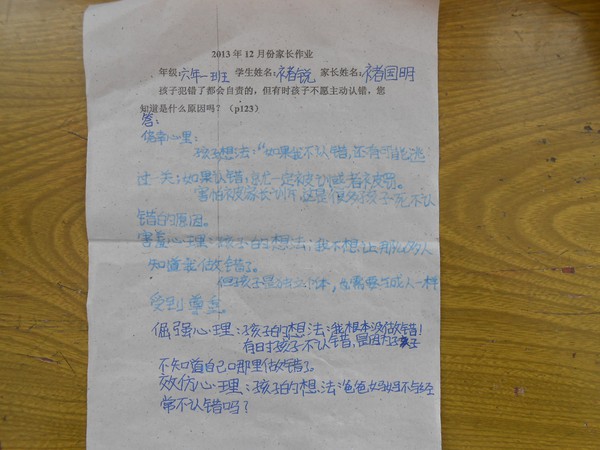 2013年12月份家长作业
年级:六年一班 学生姓名:褚锐 家长姓名:褚国明
孩子犯错了都会自责的，但有时孩子不愿主动认错，您
知道是什么原因吗？（p123）
答:
侥幸心里:
孩子想法:“如果我不认错,还有可能逃
过一天;如果认错,就一定被训或者被罚。
害怕被家长训斥,这是很多孩子死不认
错的原因。
害羞心理:孩子的想法;我不想让那么多人
知道我做错了。
但孩子是独立个体,也需要与成人一样
受到尊重
倔强心理:孩子的想法:我根本没做错!
有时孩子不认错,是因为孩子
不知道自己哪里做错了。
效仿心理:孩子的想法:爸爸妈妈不也经
常不认错吗?